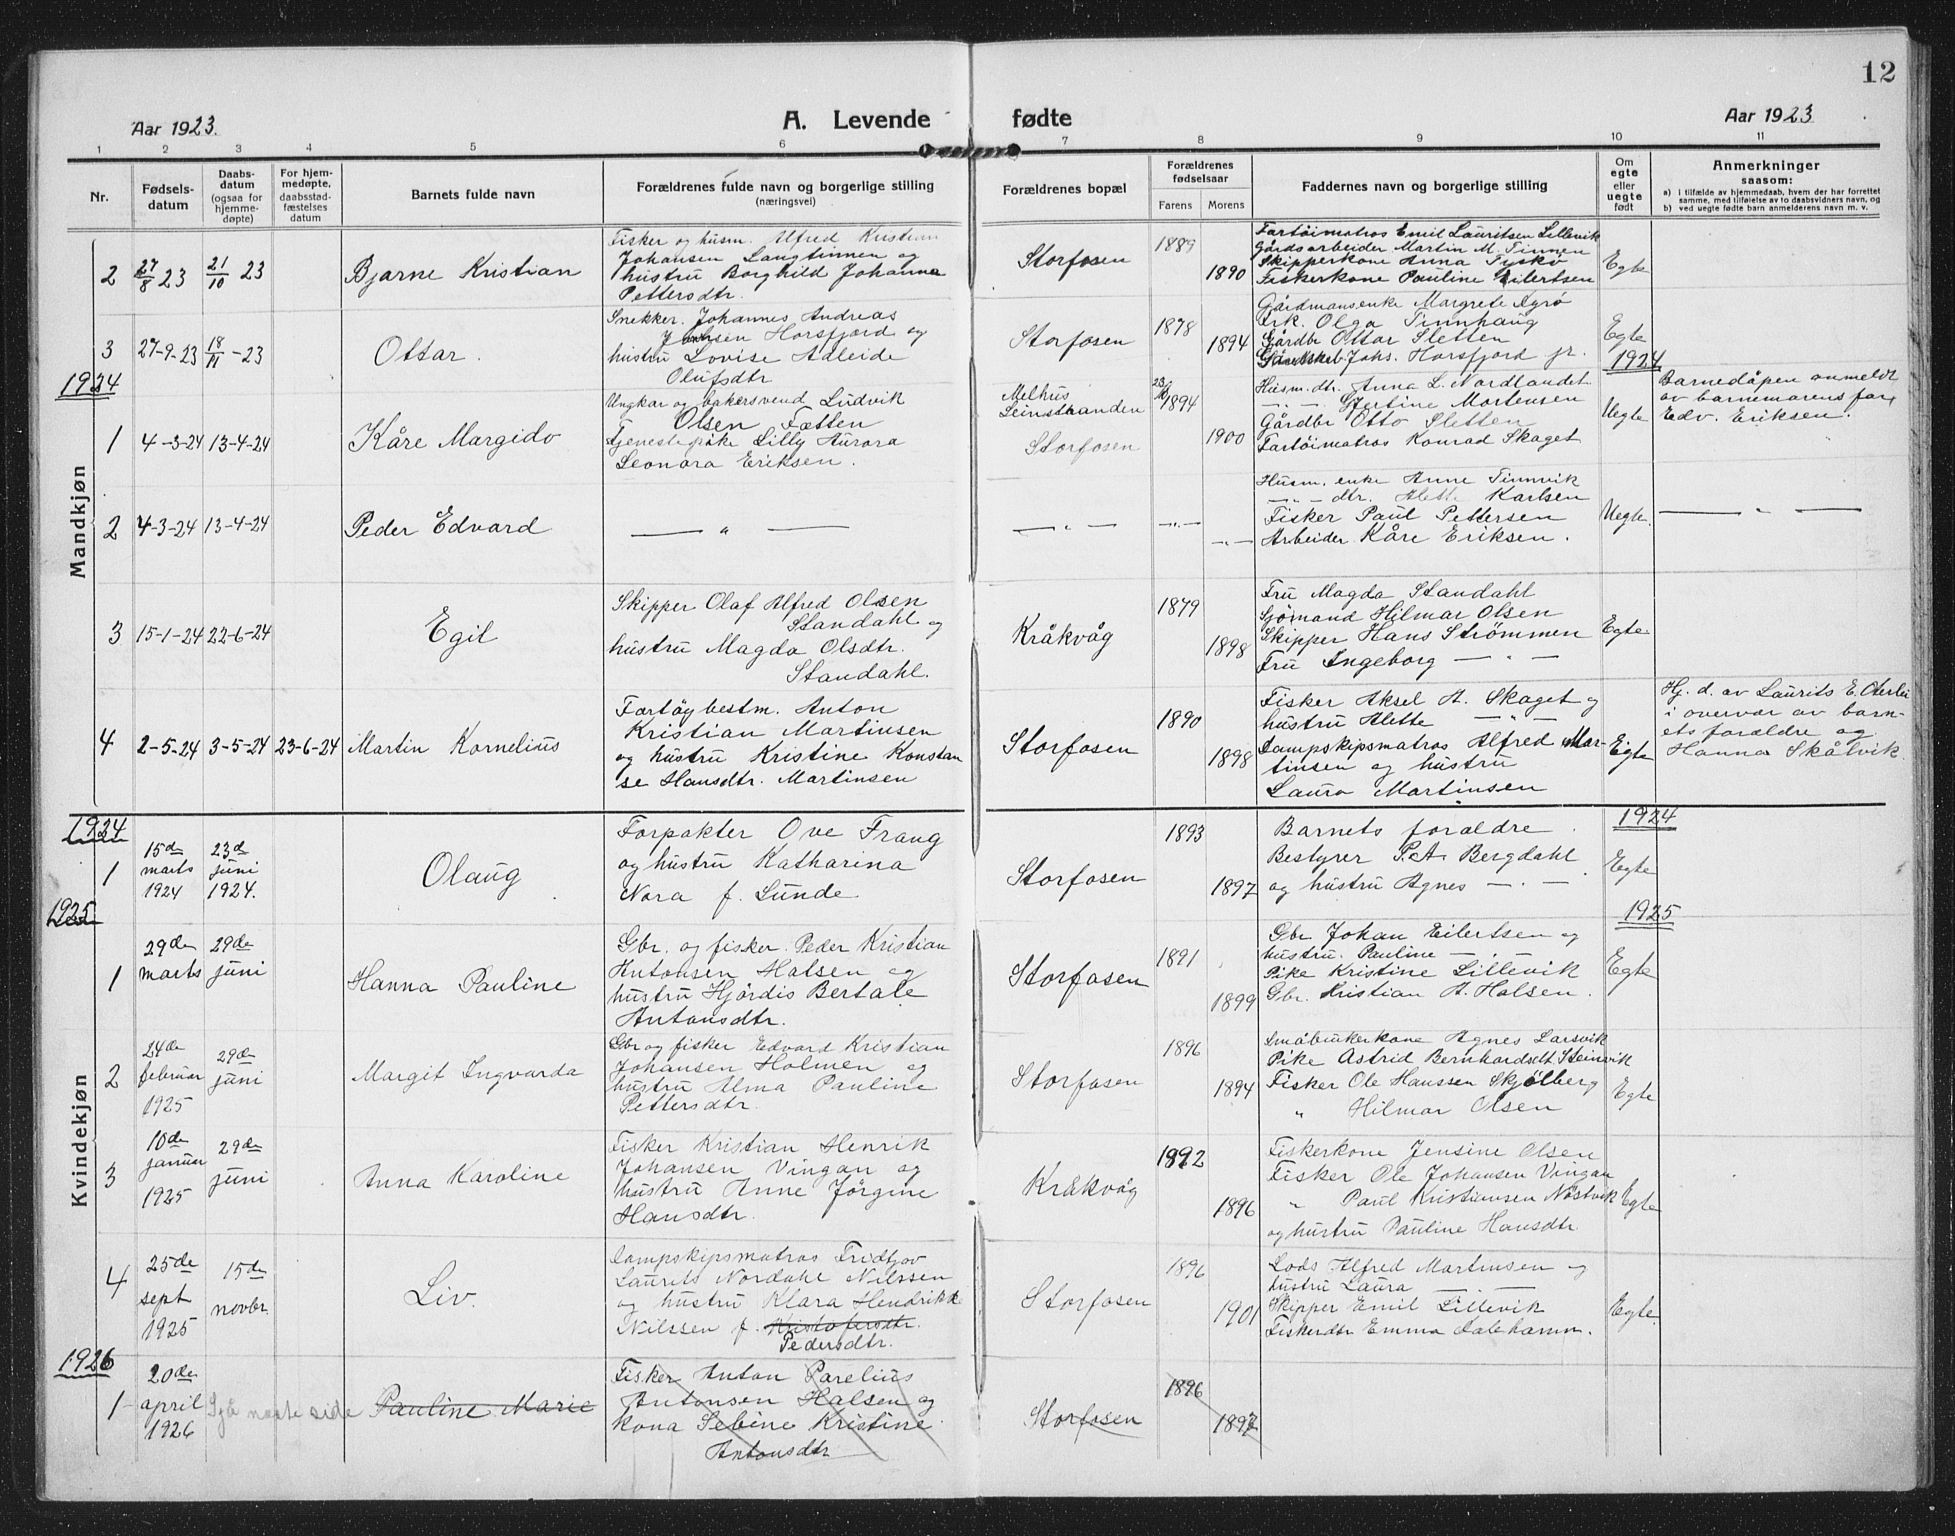 12
Aar 1923.
A. Levende fødte
Aar 1923
1 2 3 4 5 6 7 8 9 10 11
Nr.
Fødsels-
datum
Daabs-
datum
(ogsaa for
hjemme-
døpte)
For hjem-
medøpte,
daabsstad-
fæstelses
datum
Barnets fulde navn
Forældrenes fulde navn og borgerlige stilling
(næringsvei)
Forældrenes bopæl
Forældrenes
fødselsaar
Farens Morens
Faddernes navn og borgerlige stilling
Om
egte
eller
uegte
født
Anmerkninger
saasom:
a) i tilfælde av hjemmedaab, hvem der har forrettet
samme, med tilføielse av to daabsvidners navn, og
b) ved uegte fødte barn anmelderens navn m. v.
Mandkjøn
2
27/8 23
21/10 23
Bjarne Kristian
Fisker og husm. Alfred Kristian
Johansen Langtinnen og
hustru Borghild Johanna
Pettersdtr.
Storfosen
1889
1890
Fartöimatros Emil Lauritsen Lillevik
Gårdsarbeider Martin M. Tinnen
Skipperkone Anna Tyskö
Fiskerkone Pauline Eilertsen
Egte
3
27-9-23
18/11-23
Ottar.
Snekker. Johannes Andreas
Jensen Horsfjord og
hustru Lovise Adleide
Olufsdtr
Storfosen
1878
1894
Gårdmansenke Margrete Agrö
Frk. Olga Tinnhaug
Gårdbr Ottar Sletten
Johs. Horsfjord jr.
Egte
1924
1924
1
4-3-24
13-4-24
Kåre Margido
Ungkar og bakersvend Ludvik
Olsen Fætten
Tjenestepike Lilly Aurora
Leonora Eriksen.
Melhus
Leinstranden
Storfosen
1894
1900
Husm. dtr. Anna L. Nordlandet
- " - Gjertine Mortensen
Gårdbr Otto Sletten
Fartöimatros Konrad Skaget
Uegte
Barnedåpen anmeldt
av barnemorens far,
Edv. Eriksen.
2
4-3-24
13-4-24
Peder Edvard
— " —
— " —
— " —
— " —
Husm. enke Anne Tinnvik
- " - dtr. Alette Karlsen
Fisker Paul Pettersen
Arbeider Kåre Eriksen.
Uegte.
— " —
3
15-1-24
22-6-24
Egil
Skipper Olaf Alfred Olsen
Standahl og
hustru Magda Olsdtr.
Standahl.
Kråkvåg
1879
1898
Fru Magda Standahl
Sjömand Hilmar Olsen
Skipper Hans Strömmen
Fru Ingeborg — " —
Egte
4
2-5-24
3-5-24
23-6-24
Martin Kornelius
Fartöybestm. Anton
Kristian Martinsen
og hustru Kristine Konstan
se Hansdtr. Martinsen
Storfosen
1890
1898
Fisker Aksel A. Skaget og
hustru Alette — " —
Dampskipsmatros Alfred Mar-
tinsen og hustru
Laura Martinsen
Egte
Hj. d. av Laurits E. Oterlei
i overvær av barn-
ets forældre og
Hanna Skålvik
Kvindekjøn
1924
1924
1
15de
marts
1924
23de
juni
1924.
Olaug
Forpakter Ove Fraug
og hustru Katharina
Nora f. Lunde
Storfosen
1893
1897
Barnets forældre.
Bestyrer P.A. Bergdahl
og hustru Agnes — " —
Egte
1925
1925
1
29de
marts
29de
juni
Hanna Pauline
Gbr. og fisker. Peder Kristian
Antonsen Halsen og
hustru Hjördis Bertale
Antonsdtr.
Storfosen
1891
1899
Gbr Johan Eilertsen og
hustru. Pauline — " —
Pike Kristine Lillevik
Gbr. Kristian A. Halsen.
Egte
2
24de
februar
1925
29de
juni
Margit Ingvarda
Gbr og fisker Edvard Kristian
Johansen Holmen og
hustru Alma Pauline
Pettersdtr.
Storfosen
1896
1894
Småbrukerkone Agnes Larsvik
Pike Astrid Bernhardsdt Steinvik
Fisker Ole Hanssen Skjölberg
" Hilmar Olsen
Egte
3
10de
januar
1925
29de
juni
Anna Karoline
Fisker Kristian Henrik
Johansen Vingan og
hustru Anne Jörgine
Hansdtr.
Kråkvåg
1892
1896
Fiskerkone Jensine Olsen
Fisker Ole Johansen Vingan
" Paul Kristiansen Nöstvik
og hustru Pauline Hansdtr
Egte
4
25de
sept
1925
15de
novbr
Liv.
Dampskipsmatros Fridtjov
Laurits Nordahl Nilssen
og hustru Klara Hendrikke
Nilssen f. Kristofersdtr.
Pedersdtr.
Storfosen
1896
1901
Lods Alfred Martinsen og
hustru Laura — " —
Skipper Emil Lillevik
Fiskerdtr Emma Dalehamn.
Egte.
1926
1
20de
april
1926
Sjå næste side
Pauline Marie
Fisker Anton Parelius
Antonsen Halsen og
kona Sebine Kristine
Antonsdtr
Storfosen
1896
1897